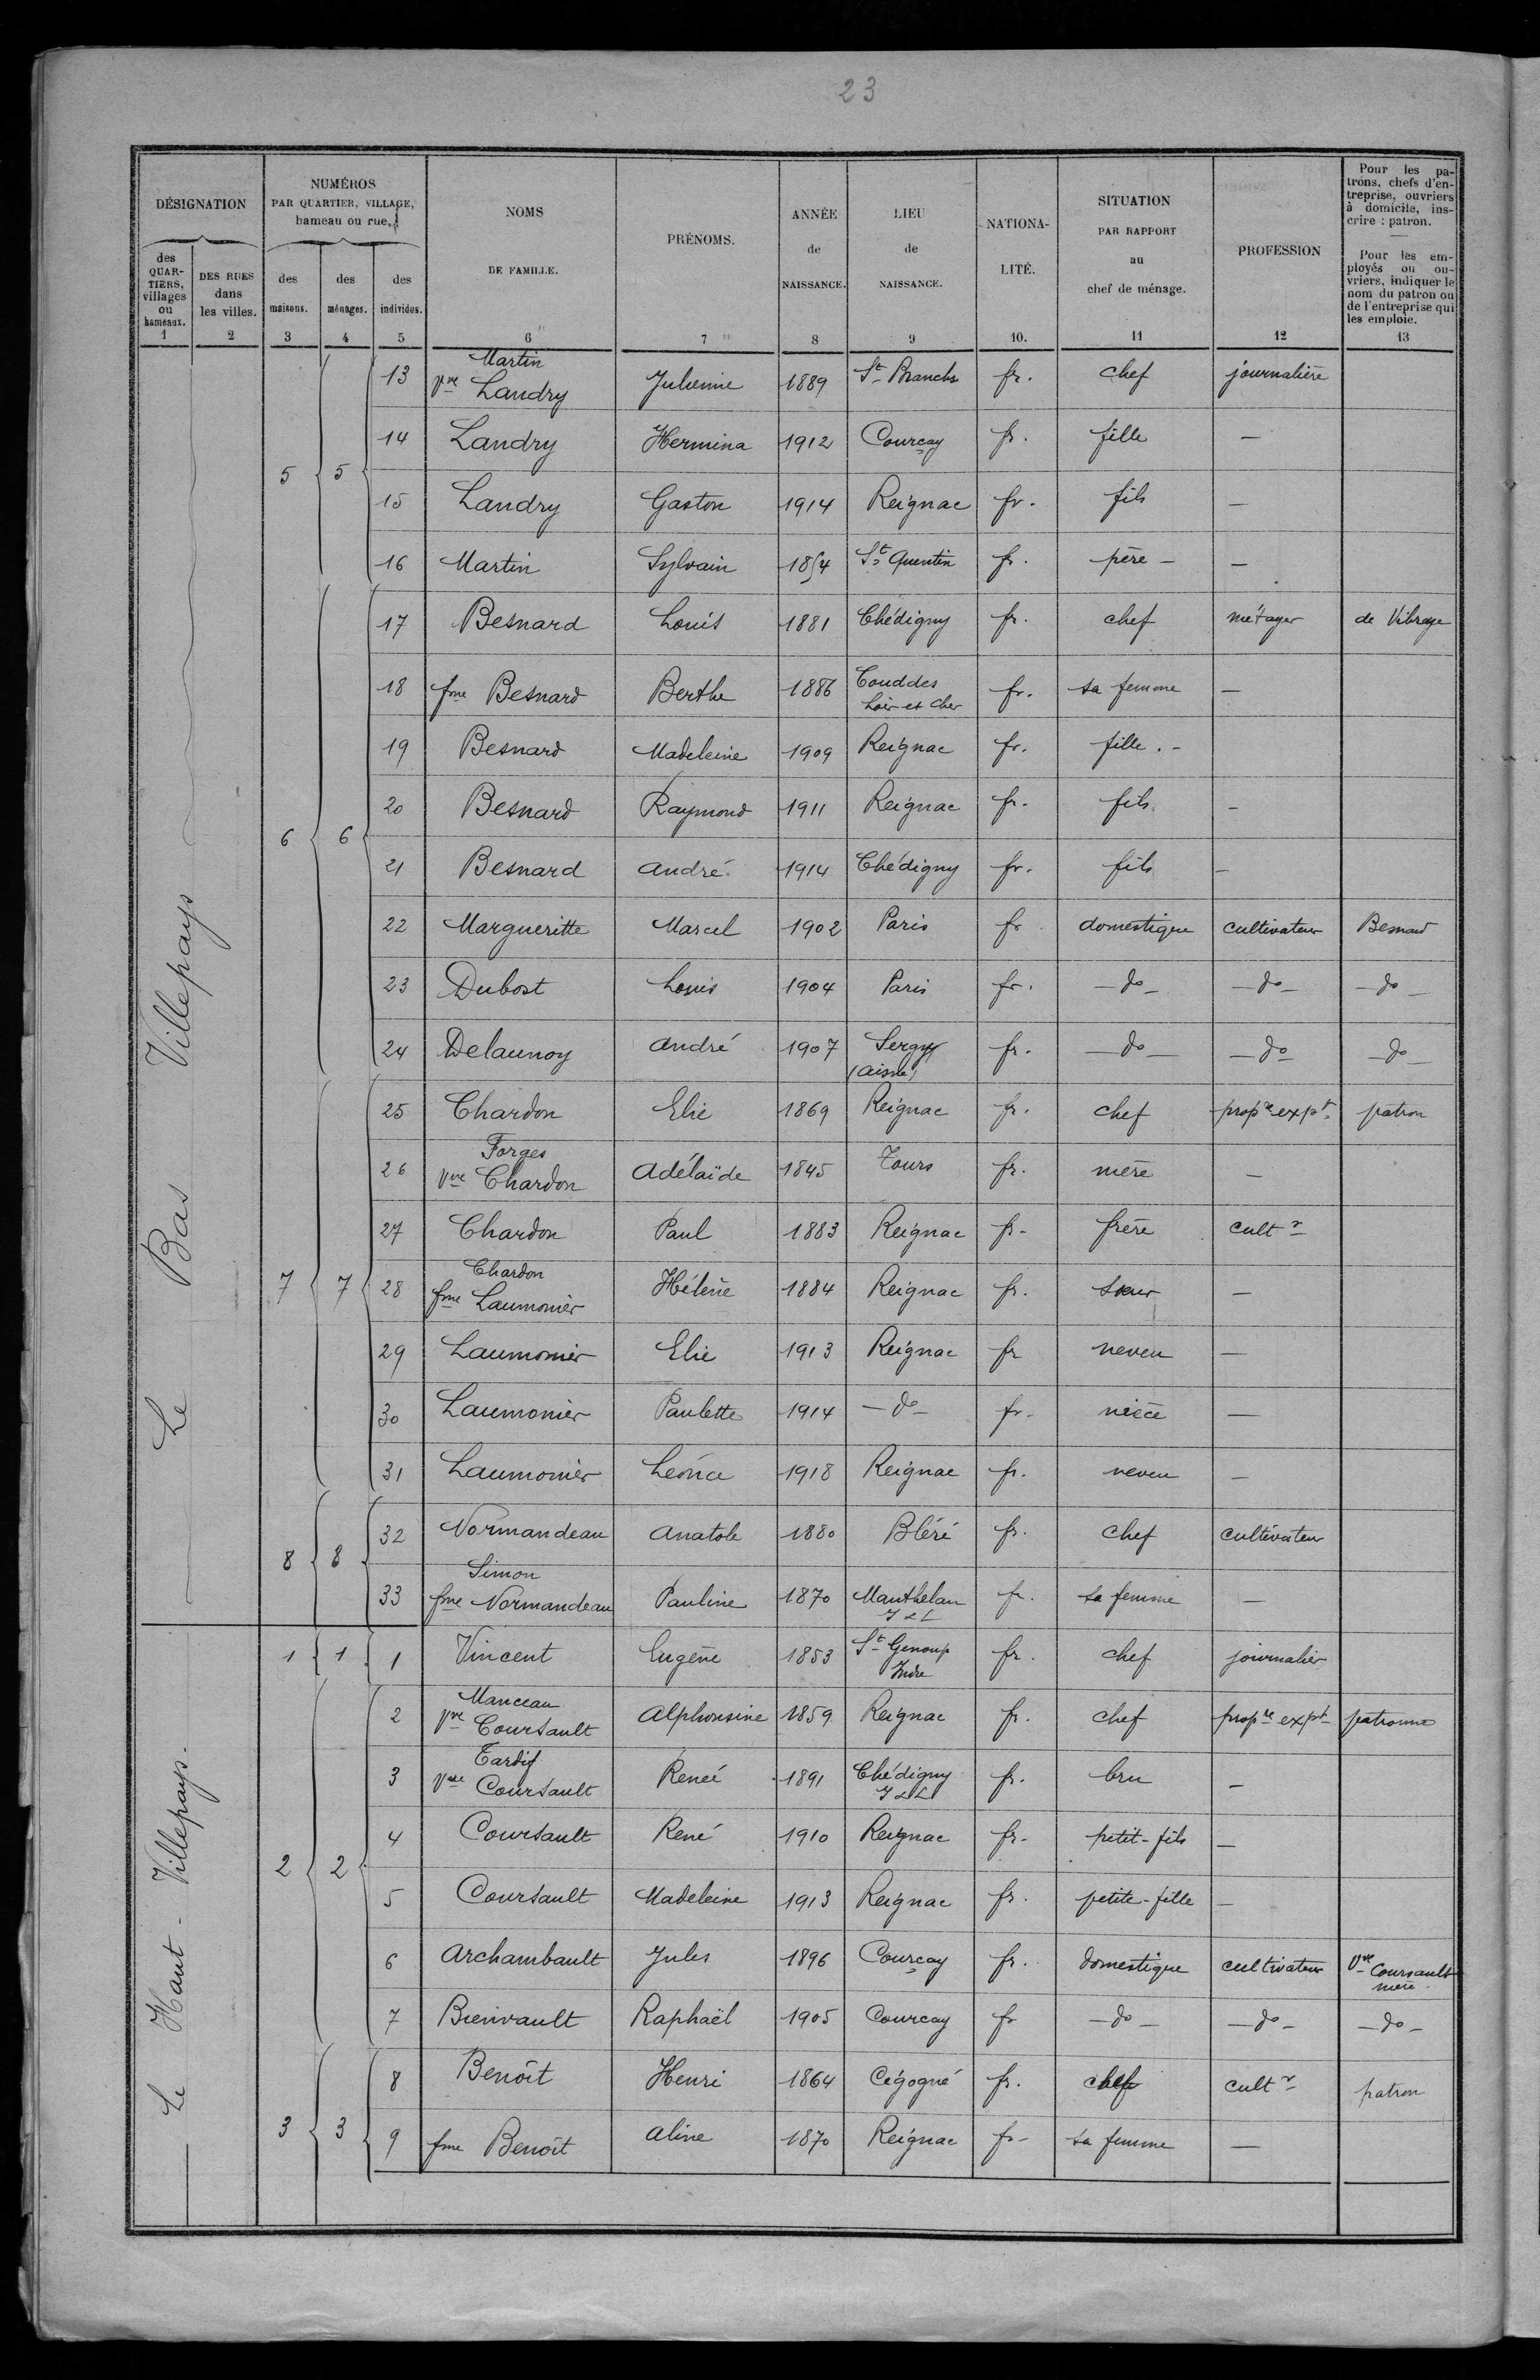 23
DÉSIGNATION
NUMÉROS
PAR QUARTIER, VILLAGE,
hameau ou rue.
NOMS
DE FAMILLE.
PRÉNOMS.
ANNÉE
de
NAISSANCE.
LIEU
de
NAISSANCE.
NATIONA-
LITÉ.
SITUATION
PAR RAPPORT
au
chef de ménage.
PROFESSION
Pour les pa-
trons, chefs d'en-
treprise, ouvriers
à domicile, ins-
crire : patron.
Pour les em-
ployés ou ou-
vriers, indiquer le
nom du patron ou
de l'entreprise qui
les emploie.
des
QUAR-
TIERS,
villages
ou
hameaux.
DES RUES
dans
les villes.
des
maisons.
des
ménages.
des
individus.
1 2 3 4 5 6 7 8 9 10. 11 12 13
Le Bas Villepays
5 5
Martin
13 Vve Landry Julienne 1889 St Branchs fr. chef journalière
14 Landry Hermina 1912 Courçay fr. fille —
15 Landry Gaston 1914 Reignac fr. fils —
16 Martin Sylvain 1854 St Quentin fr. père — —
6 6
17 Besnard Louis 1881 Chédigny fr. chef métayer de Vibraye
18 fme Besnard Berthe 1886 Couddes fr. sa femme —
Loir et Cher
19 Besnard Madeleine 1909 Reignac fr. fille . -
20 Besnard Raymond 1911 Reignac fr. fils —
21 Besnard André 1914 Chédigny fr. fils —
22 Margueritte Marcel 1902 Paris fr domestique cultivateur Besnard
23 Dubost Louis 1904 Paris fr. — do — — do — — do —
24 Delaunoy André 1907 Sergy fr. — do — — do — — do —
(Aisne)
7 7
25 Chardon Elie 1869 Reignac fr. chef propre expt patron
Forges
26 Vve Chardon Adélaïde 1845 Tours fr. mère —
27 Chardon Paul 1883 Reignac fr- frère cultr
Chardon
28 fme Laumonier Hélène 1884 Reignac fr. sœur —
29 Laumonier Elie 1913 Reignac fr neveu —
30 Laumonier Paulette 1914 — do — fr- nièce —
31 Laumonier Léonce 1918 Reignac fr. neveu —
8 8
32 Normandeau Anatole 1880 Bléré fr. chef cultivateur
Simon
33 fme Normandeau Pauline 1870 Manthelan fr. sa femme —
I & L
Le Haut - Villepays.
1 1
1 Vincent Eugène 1853 St Genoup fr. chef journalier
Indre
2 2
Manceau
2 Vve Coursault Alphonsine 1859 Reignac fr. chef propre expt patronne
Tardif
3 Vve Coursault Renée 1891 Chédigny fr. bru —
I & L
4 Coursault René 1910 Reignac fr- petit-fils —
5 Coursault Madeleine 1913 Reignac fr. petite-fille —
6 Archambault Jules 1896 Courçay fr. domestique cultivateur Vve Coursault
mère
7 Bienvault Raphaël 1905 Courcay fr — do — — do — — do —
3 3
8 Benoît Henri 1864 Cigogné fr. chef cultr patron
9 fme Benoît Aline 1870 Reignac fr- sa femme —